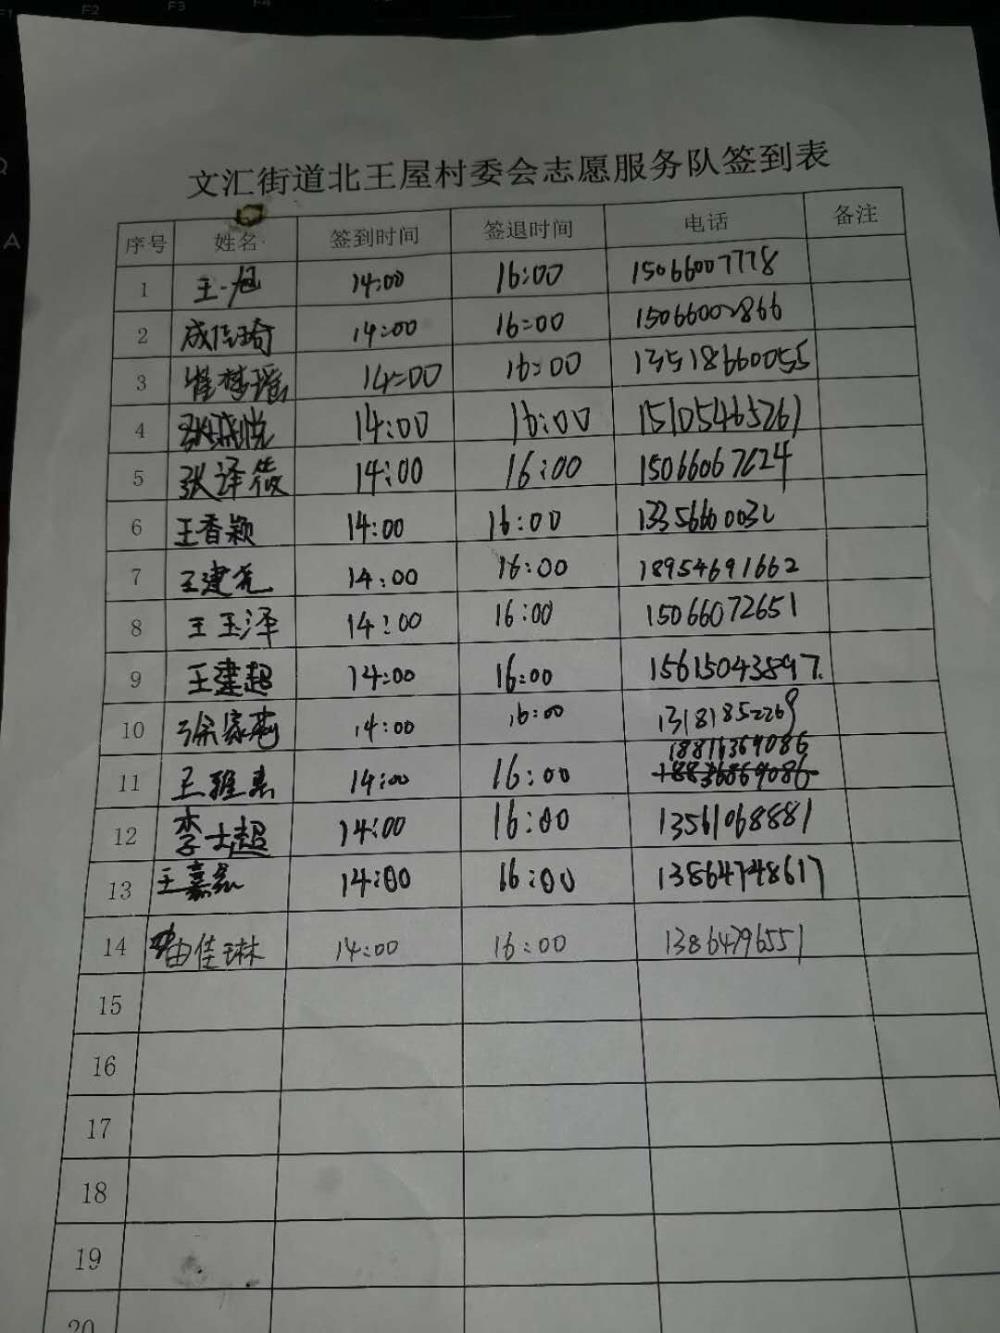 文汇街道北王屋村委会志愿服务队签到表
序号 姓名 签到时间 签退时间 电话 备注
1 王一旭 14:00 16:00 15066007778
2 成佳琦 14:00 16:00 15066002866
3 崔梦瑶 14:00 16:00 13518660055
4 14:00 16:00 15105465261
5 张译筱 14:00 16:00 15066067624
6 王香颖 14:00 16:00 1335660032
7 王建尧 14:00 16:00 18954691662
8 王玉泽 14:00 16:00 15066072651
9 王建超 14:00 16:00 15615043897.
10 徐家莉 14:00 16:00 13181852269
18816369086
11 14:00 16:00
12 李士超 14:00 16:00 13561068881
13 14:00 16:00 13864748617
14 由佳琳 14:00 16:00 13864796551
15
16
17
18
19
20